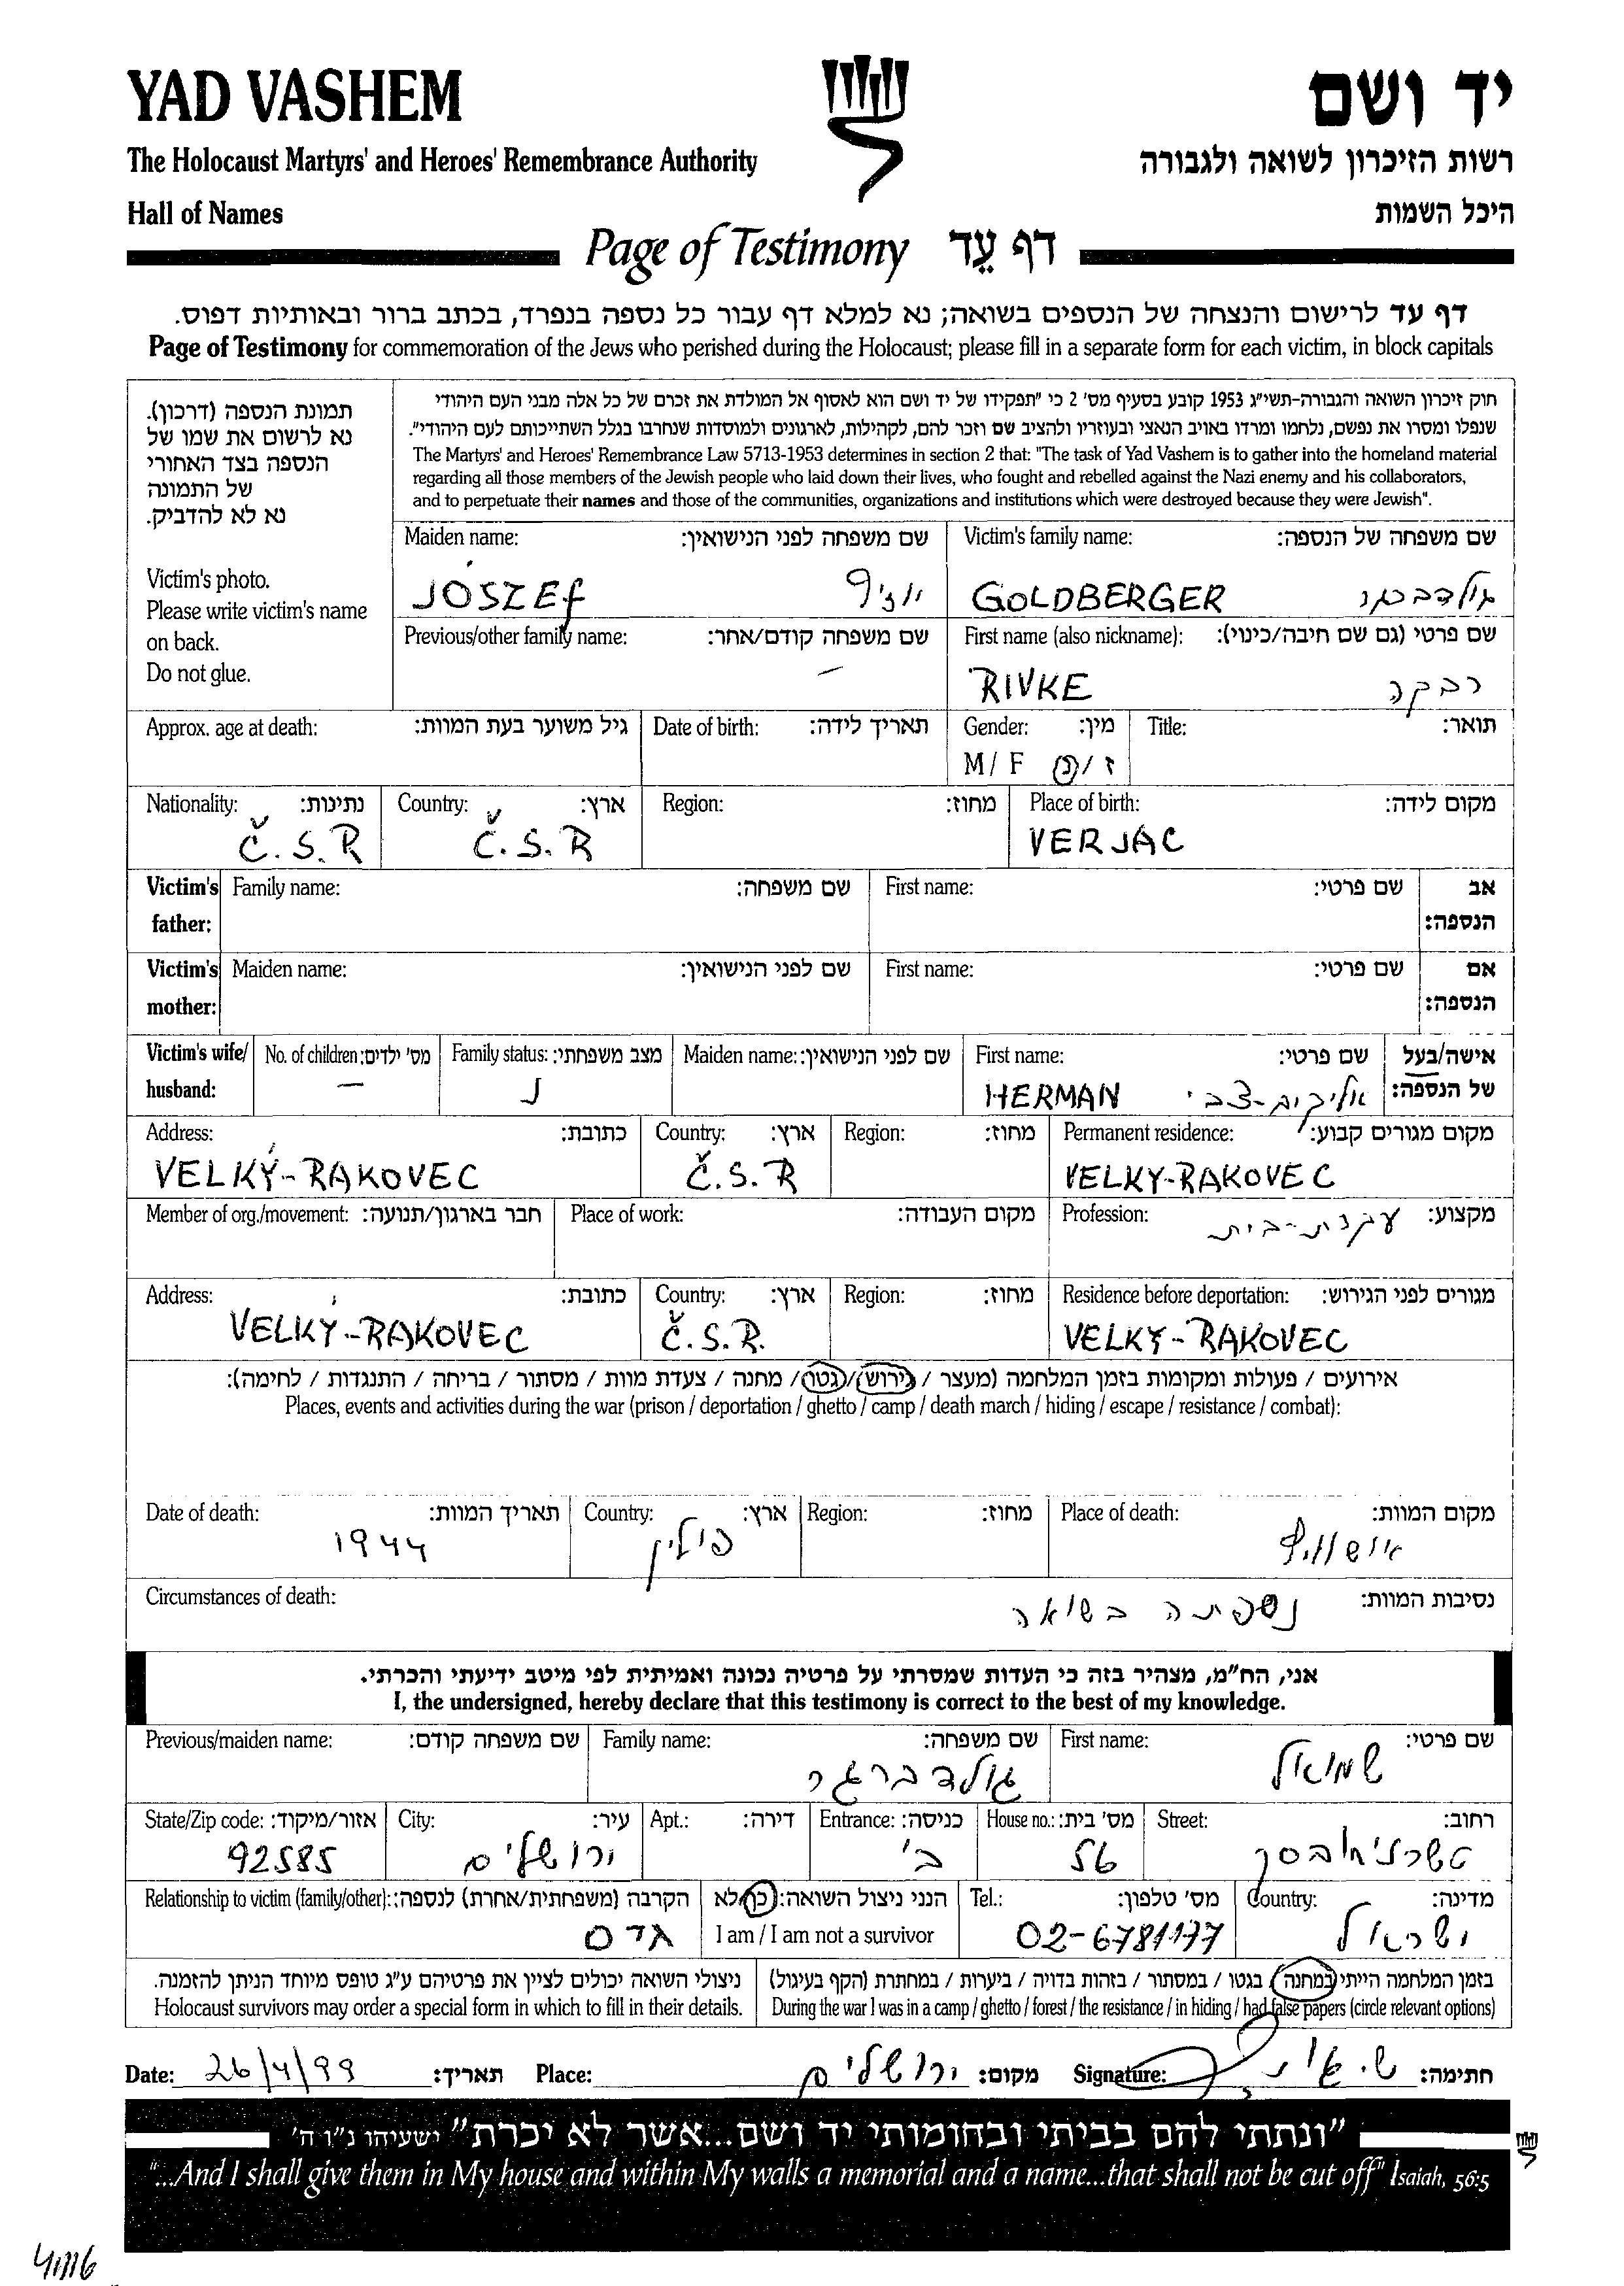 YAD VASHEM
יד ושם
The Holocaust Martyrs' and Heroes' Remembrance Authority
רשות הזיכרון לשואה ולגבורה
Hall of Names
היכל השמות
Page of Testimony דף עֵד
דף עד לרישום והנצחה של הנספים בשואה; נא למלא דף עבור כל נספה בנפרד, בכתב ברור ובאותיות דפוס.
Page of Testimony for commemoration of the Jews who perished during the Holocaust; please fill in a separate form for each victim, in block capitals
תמונת הנספה (דרכון).
נא לרשום את שמו של
הנספה בצד האחורי
של התמונה
נא לא להדביק.
Victim's photo.
Please write victim's name
on back.
Do not glue.
חוק זיכרון השואה והגבורה-תשי״ג 1953 קובע בסעיף מס' 2 כי "תפקידו של יד ושם הוא לאסוף אל המולדת את זכרם של כל אלה מבני העם היהודי
שנפלו ומסרו את נפשם, נלחמו ומרדו באויב הנאצי ובעוזריו ולהציב שם וזכר להם, לקהילות, לארגונים ולמוסדות שנחרבו בגלל השתייכותם לעם היהודי".
The Martyrs' and Heroes' Remembrance Law 5713-1953 determines in section 2 that: "The task of Yad Vashem is to gather into the homeland material
regarding all those members of the Jewish people who laid down their lives, who fought and rebelled against the Nazi enemy and his collaborators,
and to perpetuate their names and those of the communities, organizations and institutions which were destroyed because they were Jewish".
Maiden name: שם משפחה לפני הנישואין:
JÓSZEF
Victim's family name: שם משפחה של הנספה:
GOLDBERGER
Previous/other family name: שם משפחה קודם/אחר:
–
First name (also nickname): שם פרטי (גם שם חיבה/כינוי):
RIVKE רבקה
Approx. age at death: גיל משוער בעת המוות:
Date of birth: תאריך לידה:
Gender: מין:
M / F ז / נ
Title: תואר:
Nationality: נתינות:
Č.S.R
Country: ארץ:
Č.S.R
Region: מחוז:
Place of birth: מקום לידה:
VERJAC
Victim's father: Family name: שם משפחה: First name: שם פרטי: אב הנספה:
Victim's mother: Maiden name: שם לפני הנישואין: First name: שם פרטי: אם הנספה:
Victim's wife/ husband:
No. of children: מס' ילדים:
–
Family status: מצב משפחתי:
נ
Maiden name: שם לפני הנישואין:
First name: שם פרטי:
HERMAN אליקים-צבי
אישה/בעל של הנספה:
Address: כתובת:
VELKÝ-RAKOVEC
Country: ארץ:
Č.S.R
Region: מחוז:
Permanent residence: מקום מגורים קבוע:
VELKY-RAKOVEC
Member of org./movement: חבר בארגון/תנועה:
Place of work: מקום העבודה:
Profession: מקצוע:
עקרת-בית
Address: כתובת:
VELKY-RAKOVEC
Country: ארץ:
Č.S.R.
Region: מחוז:
Residence before deportation: מגורים לפני הגירוש:
VELKY-RAKOVEC
אירועים / פעולות ומקומות בזמן המלחמה (מעצר / גירוש / גטו / מחנה / צעדת מוות / מסתור / בריחה / התנגדות / לחימה):
Places, events and activities during the war (prison / deportation / ghetto / camp / death march / hiding / escape / resistance / combat):
Date of death: תאריך המוות:
1944
Country: ארץ:
פולין
Region: מחוז:
Place of death: מקום המוות:
אושוויץ
Circumstances of death: נסיבות המוות:
נספתה בשואה
אני, הח״מ, מצהיר בזה כי העדות שמסרתי על פרטיה נכונה ואמיתית לפי מיטב ידיעתי והכרתי.
I, the undersigned, hereby declare that this testimony is correct to the best of my knowledge.
Previous/maiden name: שם משפחה קודם:
Family name: שם משפחה:
גולדברגר
First name: שם פרטי:
שמואל
State/Zip code: אזור/מיקוד:
92585
City: עיר:
ירושלים
Apt.: דירה:
Entrance: כניסה:
ב'
House no.: מס' בית:
56
Street: רחוב:
טשרניחובסקי
Relationship to victim (family/other): הקרבה (משפחתית/אחרת) לנספה:
הנני ניצול השואה: כן/לא
I am / I am not a survivor
Tel.: מס' טלפון:
02-6781177
Country: מדינה:
ישראל
ניצולי השואה יכולים לציין את פרטיהם ע״ג טופס מיוחד הניתן להזמנה.
Holocaust survivors may order a special form in which to fill in their details.
בזמן המלחמה הייתי במחנה / בגטו / במסתור / בזהות בדויה / ביערות / במחתרת (הקף בעיגול)
During the war I was in a camp / ghetto / forest / the resistance / in hiding / had false papers (circle relevant options)
Date: 26/4/99 תאריך: Place: ירושלים מקום: Signature: חתימה:
"ונתתי להם בביתי ובחומותי יד ושם...אשר לא יכרת" ישעיהו נ״ו ה'
"...And I shall give them in My house and within My walls a memorial and a name...that shall not be cut off" Isaiah, 56:5